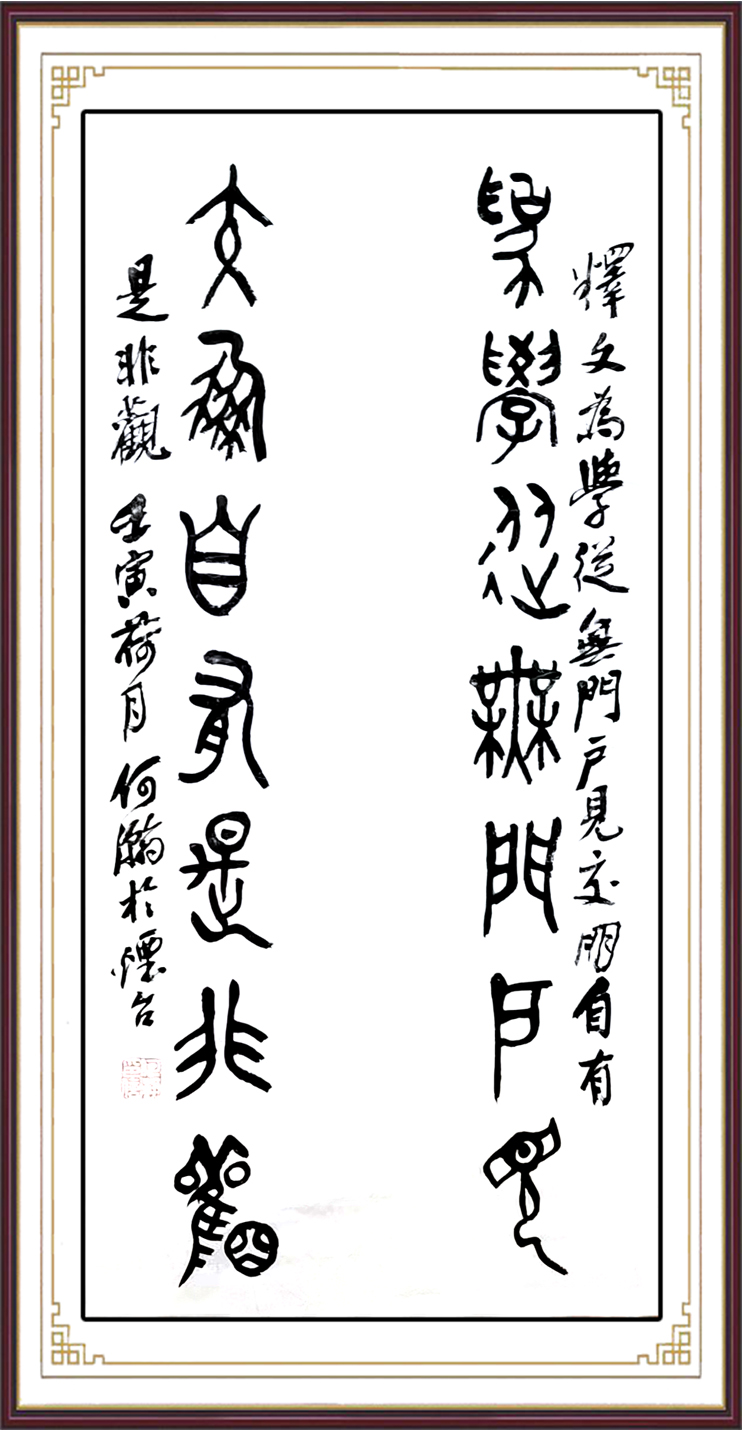 釋文為學從無門戶見交朋自有
為學從無門戶見
交朋自有是非觀
是非觀 壬寅荷月何瀚於煙台